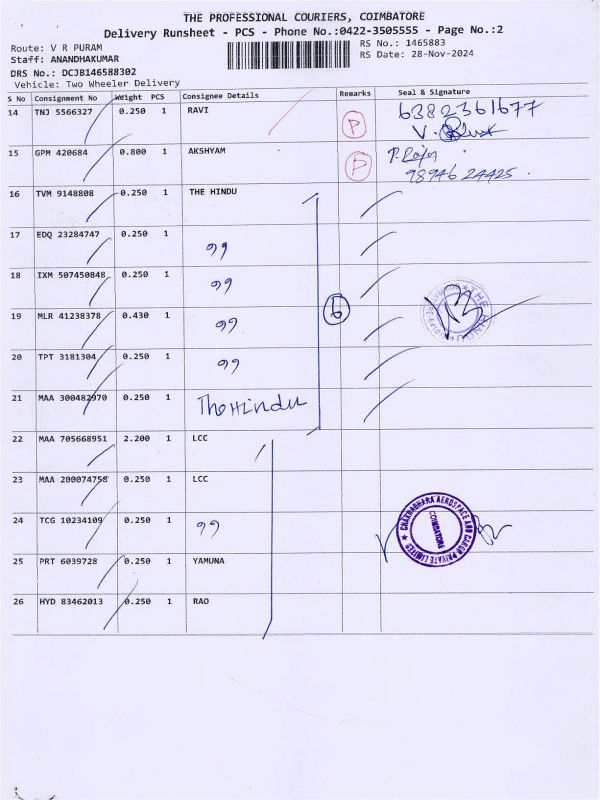 THE PROFESSIONAL COURIERS, COIMBATORE
Delivery Runsheet - PCS - Phone No.:0422-3505555 - Page No.:2
Route: V R PURAM
RS No.: 1465883
Staff: ANANDHAKUMAR
RS Date: 28-Nov-2024
DRS No.: DCJB146588302
Vehicle: Two Wheeler Delivery
S No Consignment No Weight PCS Consignee Details Remarks Seal & Signature
14 TNJ 5566327 0.250 1 RAVI P 6382361677
V.
15 GPM 420684 0.800 1 AKSHYAM P
98946 24425
16 TVM 9148808 0.250 1 THE HINDU
17 EDQ 23284747 0.250 1 99
18 IXM 507450848 0.250 1 99
19 MLR 41238378 0.430 1 99 6
THE HINDU
20 TPT 3181304 0.250 1 99
21 MAA 300482970 0.250 1 The Hindu
22 MAA 705668951 2.200 1 LCC
23 MAA 200074758 0.250 1 LCC
24 TCG 10234109 0.250 1 99
CHAKRADHARA AEROSPACE AND CARGO PRIVATE LIMITED
COIMBATORE
25 PRT 6039728 0.250 1 YAMUNA
26 HYD 83462013 0.250 1 RAO